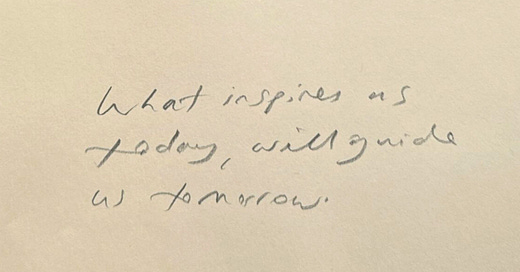 What inspires us
today, will guide
us tomorrow.